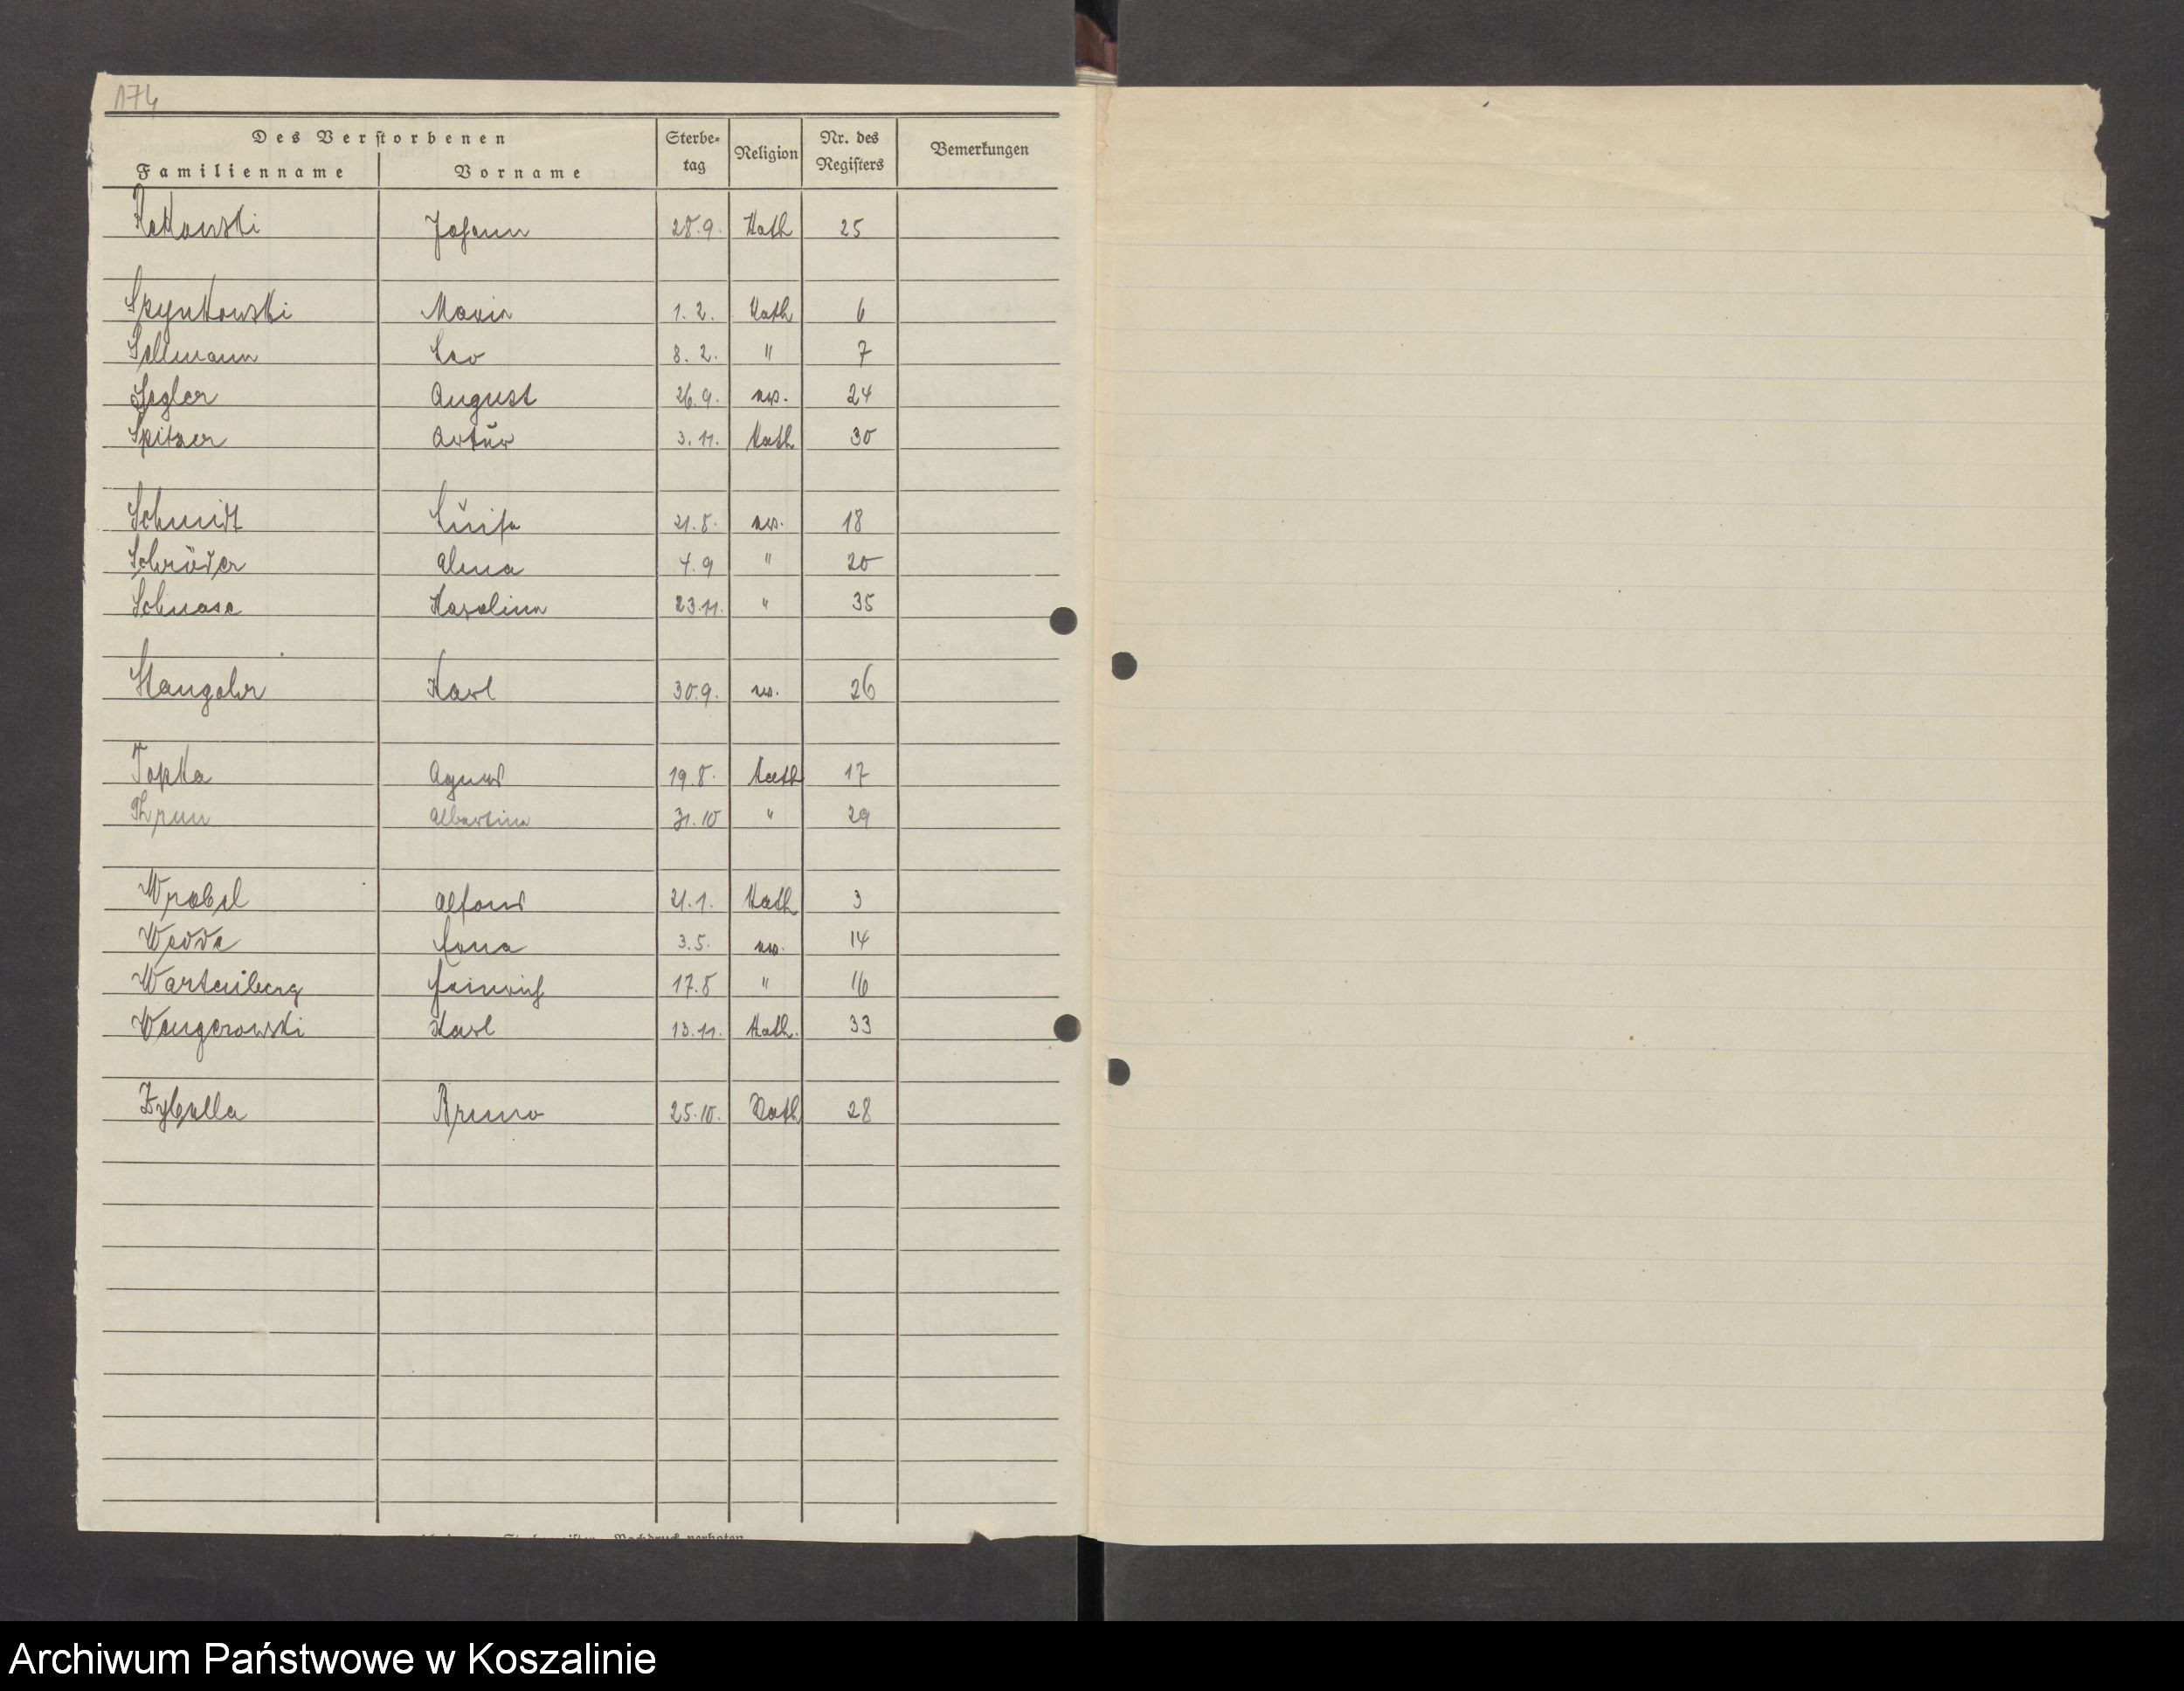 174
Des Verstorbenen
Familienname Vorname Sterbe-tag Religion Nr. des Registers Bemerkungen
Johann 28.9. Kath 25
Szynkowski Maria 1. 2. Kath 6
Sellmann Leo 8. 2. " 7
Segler August 26.9. ev. 24
Spitzer Artur 3. 11. Kath 30
Schmidt Luise 21.8. ev. 18
Schröder Alma 4.9 " 20
Schnase Karoline 23.11. " 35
Stangohr Karl 30.9. ev. 26
Topka Agnes 19.8. Kath 17
Thrun Albertine 31.10 " 29
Wrobel Alfons 21.1. Kath 3
Wedde 3.5. ev. 14
Wartenberg Heinrich 17.8 " 16
Wengerowski Karl 13.11. Kath. 33
Zybulla Bruno 25.10. Kath 28
Nachdruck verboten
Archiwum Państwowe w Koszalinie